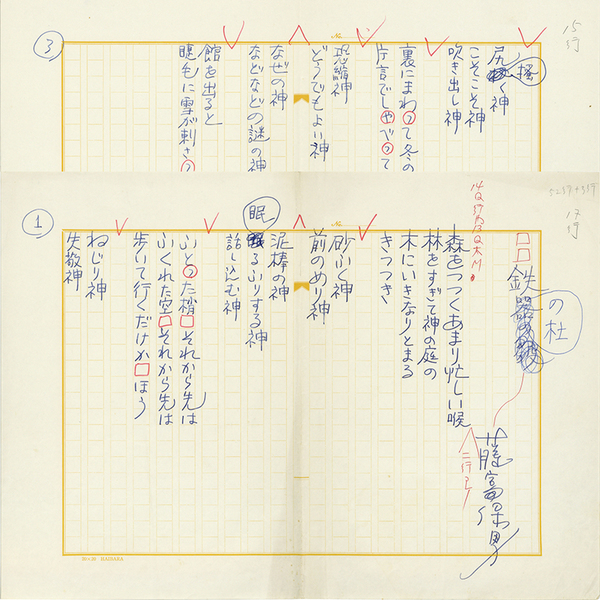 ③
15行
尻搔く神
こそこそ神
吹き出し神
裏にまわって冬の
片言でしゃべって
恐縮神
どうでもよい神
なぜの神
などなどの謎の神
館を出ると
睫毛に雪が刺さっ
①
17行
鉄の杜
藤富保男
森をつつくあまり忙しい喉
林をすぎて神の庭の
木にいきなりとまる
きつつき
砂ふく神
前のめり神
泥棒の神
眠るふりする神
話し込む神
ふとった梢□それから先は
ふくれた空□それから先は
歩いて行くだけか□ほう
ねじり神
失敬神
20×20 HAIBARA